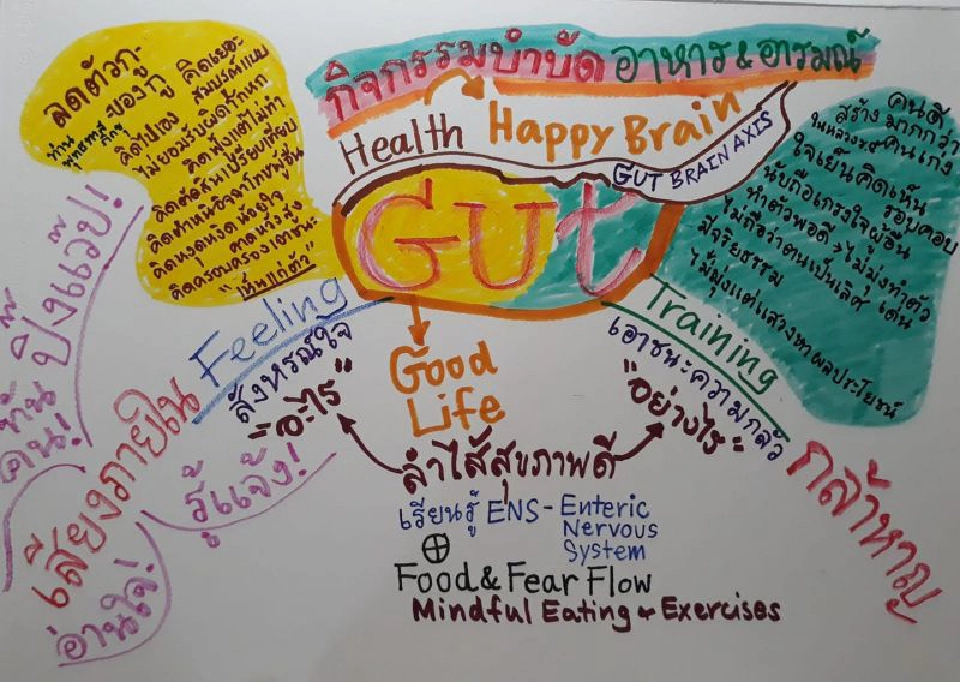 กิจกรรมบำบัด อาหาร & อารมณ์
Health Happy Brain
GUT BRAIN AXIS
GUt
ลดตัวกู-
ของกู
ท่านพุทธทาสภิกขุ
คิดเยอะ
สมบูรณ์แบบ
คิดไปเอง
ไม่ยอมรับผิดถูก
คิดฟุ้งแต่ไม่ทำ
คิดตัดสินเปรียบเทียบ
คิดตำหนิอิจฉาโทษผู้อื่น
คิดหงุดหงิดน้อยใจ
คาดหวังสูง
คิดครอบครองเอาชนะ
"เห็นแก่ตัว"
คนดี
สร้างมากกว่า
ในหลวงร๙ คนเก่ง
ใจเย็นคิดเห็น
รอบคอบ
นับถือเกรงใจผู้อื่น
ทำตัวพอดี > ไม่มุ่งทำตัวเด่น
ไม่ถือว่าตนเป็นเลิศ
มีจริยธรรม
ไม่มุ่งแต่แสวงหาผลประโยชน์
Feeling
สังหรณ์ใจ
"อะไร"
Good
Life
Training
เอาชนะความกลัว
"อย่างไร"
กล้าหาญ
เสียงภายใน
ปิ๊งแว๊ป!
คน!
รู้แจ้ง!
อ่านใจ!
ลำไส้สุขภาพดี
เรียนรู้ ENS - Enteric
Nervous
System
⊕
Food & Fear Flow
Mindful Eating & Exercises